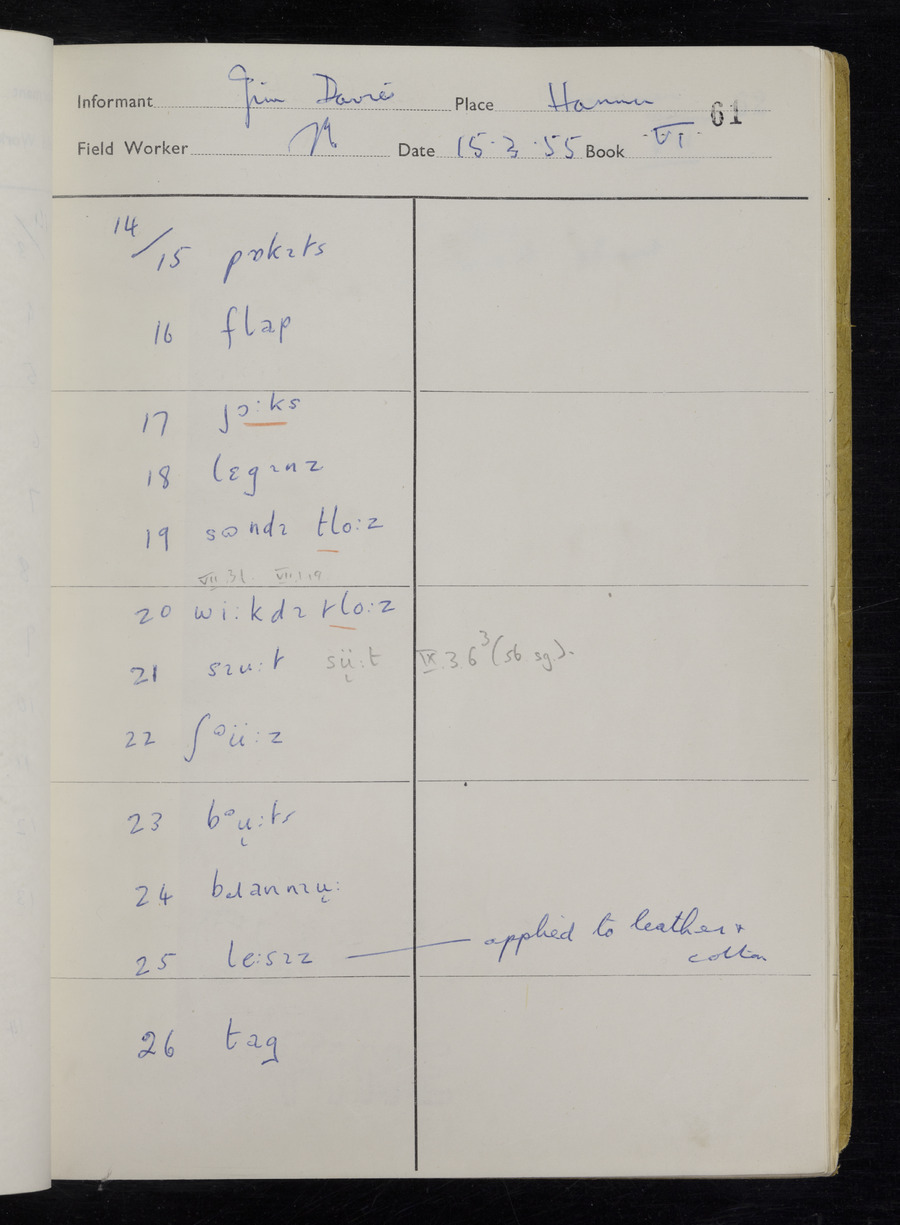 Informant Jim Davies Place Hanmer 61
Field Worker Date 15.3.55 Book VI
14/15 pɒkəts
16 flap
17 jɔ:ks
18 lɛgɪnz
19 sɷndɪ tlo:z
VII.3.1. VIII.1.19
20 wi:kdɪ tlo:z
21 sɪu:t sü̜:t IX.3 6³ (sb sg).
22 ʃᵊü:z
23 bᵊu̜:ts
24 bɹannɪu̜:
25 le:sɪz applied to leather +
cotton
26 tag